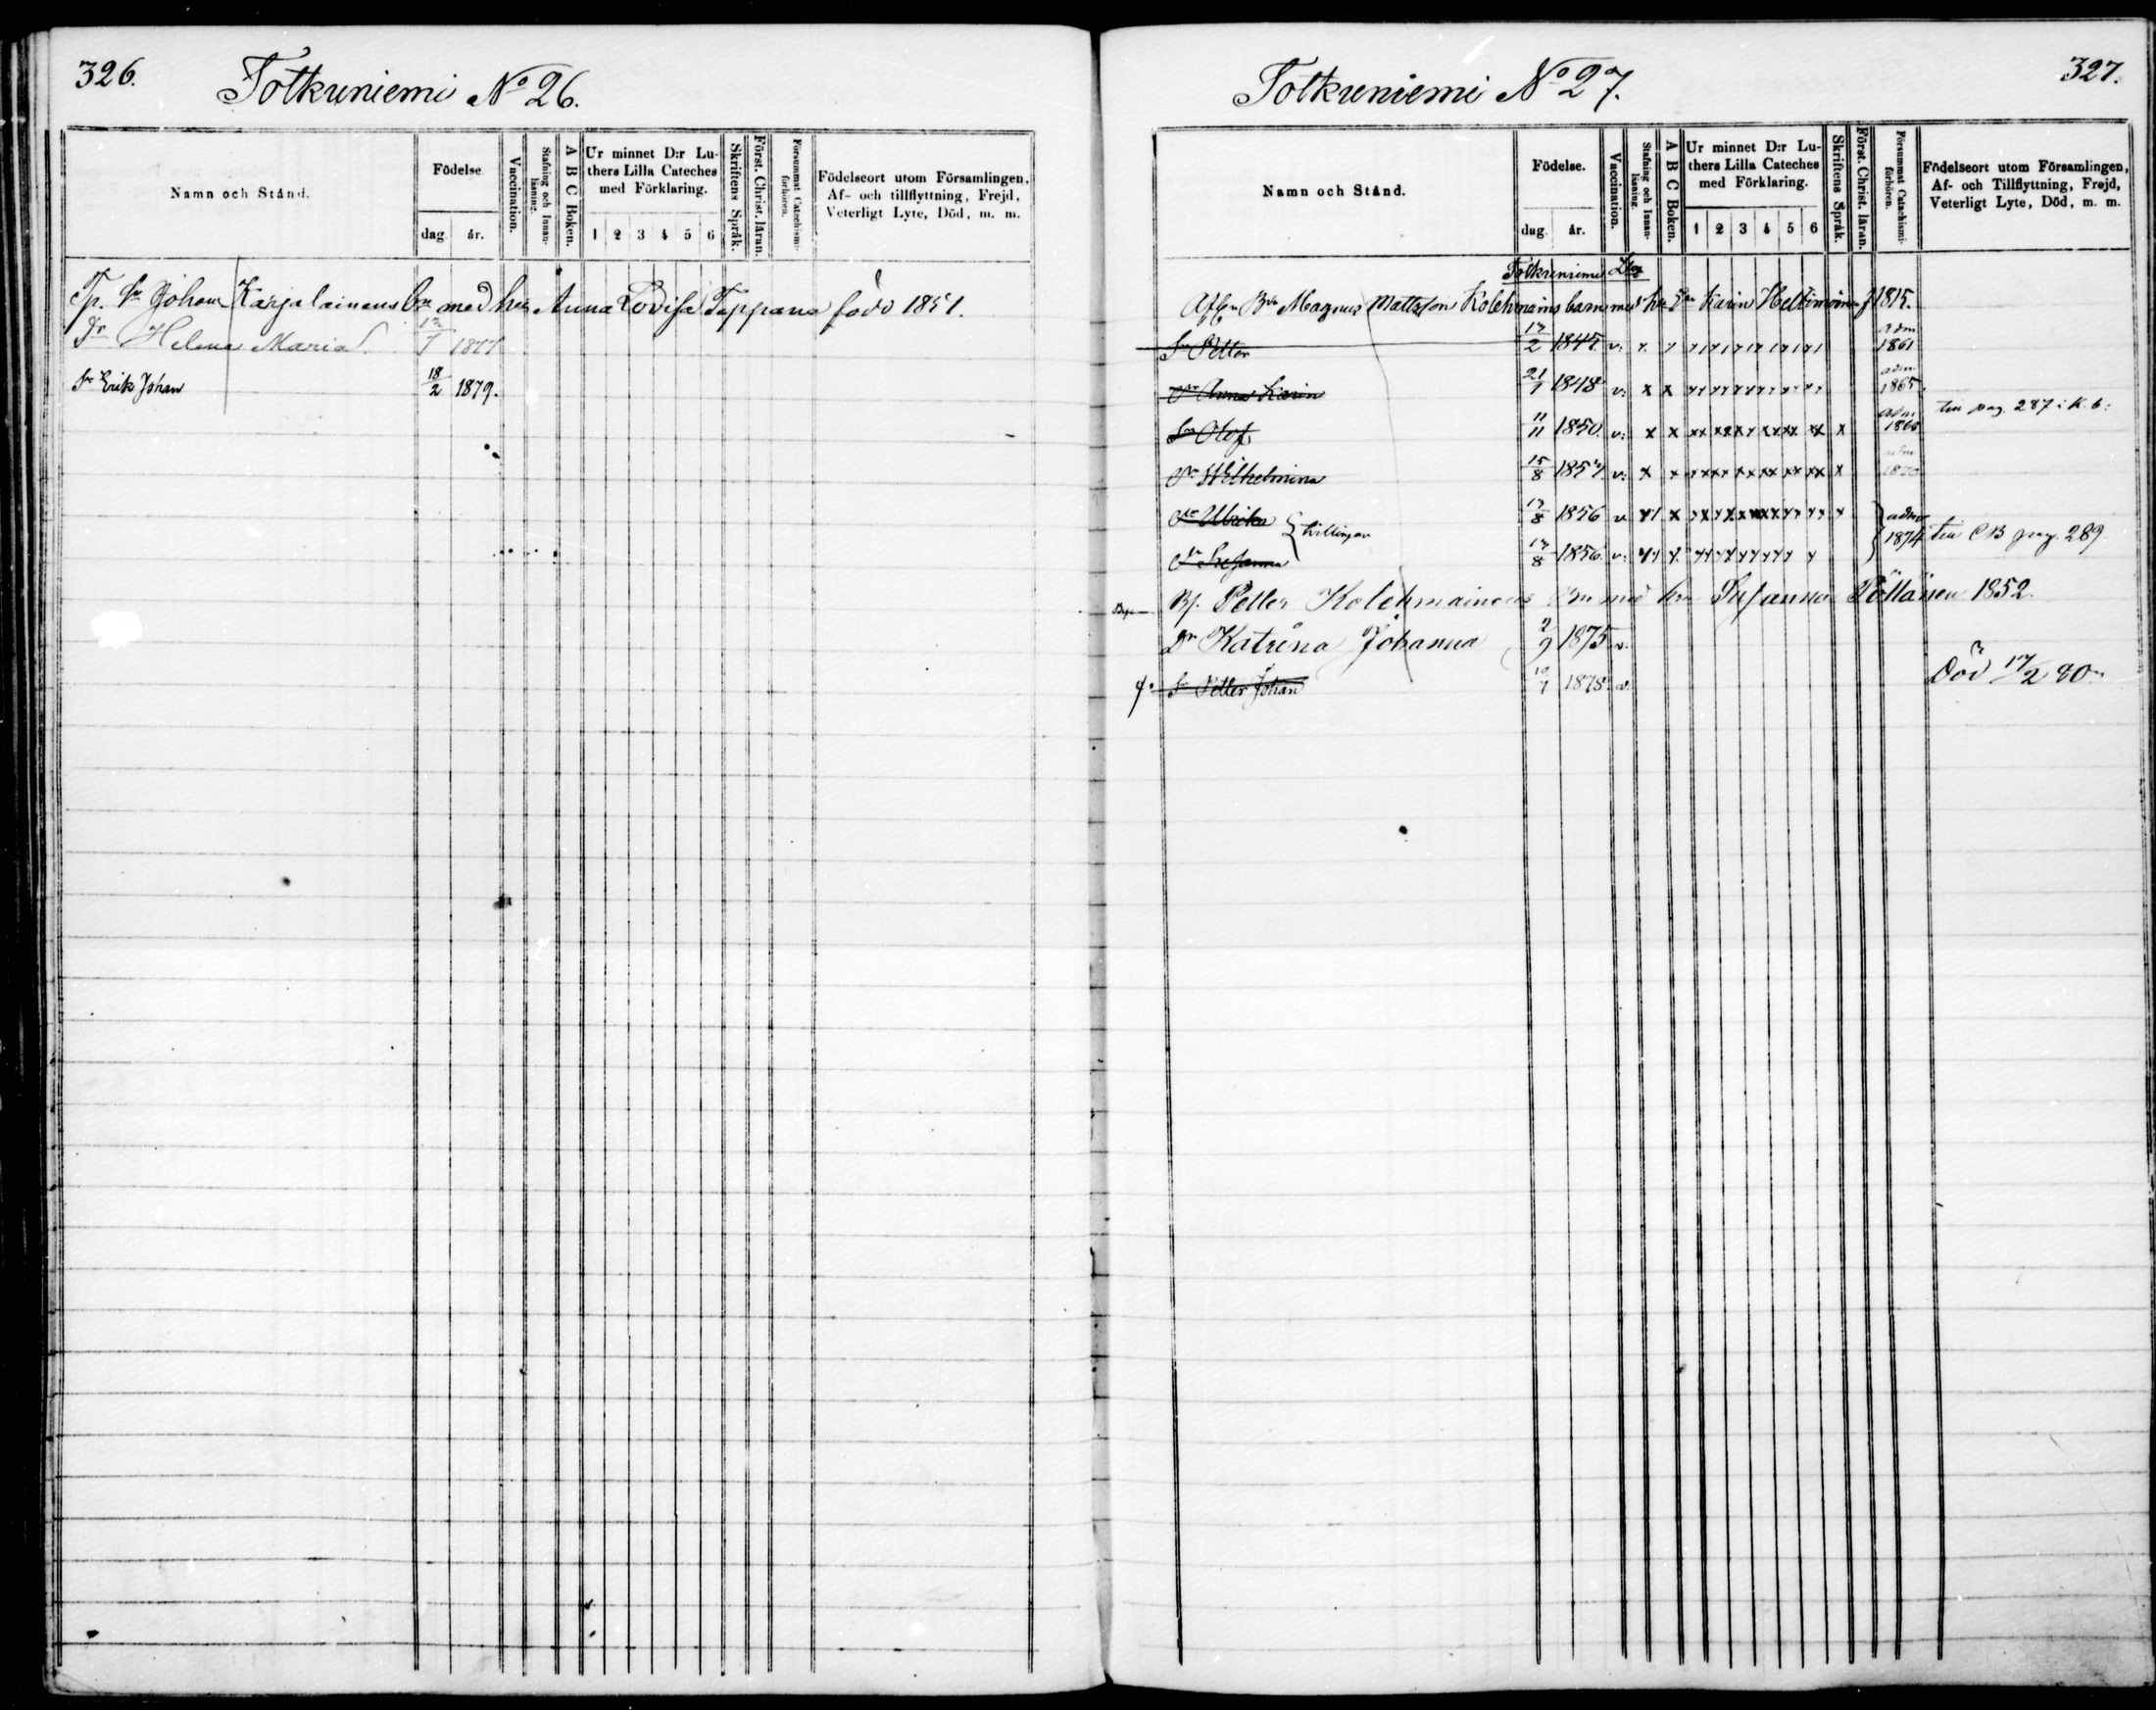 326.
Totkuniemi No 26.
Namn och Stånd.
Födelse
dag
år.
Vaccination.
Stafning och Innanläsning.
A B C Boken.
Ur minnet D:r Luthers Lilla Cateches med Förklaring.
1 2 3 4 5 6
Skriftens Språk.
Först. Christ. läran.
Försummat Catechismiförhören.
Födelseort utom Församlingen,
Af- och tillflyttning, Frejd,
Veterligt Lyte, Död, m. m.
Tp. Sn Johan Karjalainens bn med hu Anna Lovisa Tappana född 1851.
Dr Helena Maria 12/7 1877
Sn Erik Johan 18/2 1879.
327.
Totkuniemi No 27.
Namn och Stånd.
Födelse.
dag.
år.
Vaccination.
Stafning och Innanläsning.
A B C Boken.
Ur minnet D:r Luthers Lilla Cateches med Förklaring.
1 2 3 4 5 6
Skriftens Språk.
Först. Christ. läran.
Försummat Catechismiförhören.
Födelseort utom Församlingen,
Af- och Tillflyttning, Frejd,
Veterligt Lyte, Död, m. m.
Totkuniemi
Afln Bdn Magnus Mattsson Kolehmains barn med hu Karin Heltimoinen f 1815.
Sn Petter 2 1845 v. x x adm 1861
Dr Anna Karin 21/1 1848 v. x x adm. 1865.
Sn Olof 11/11 1850. v. x x x adm 1866 till pag. 287 i K. b:
Dr Wilhelmina 15/8 1853 v. x x x adm 1870
Dr Ulrika 17/8 1856 v x x tvillingar
Dr Susanna 17/8 1856. v. adm 1874 till CB pag. 289.
Bf. Petter Kolehmainens Bn med hu Susanna Pöllänen 1852.
Dr Katrina Johanna 2/9 1875 v.
Sn Petter Johan 10/7 1878 v. Död 17/2 80